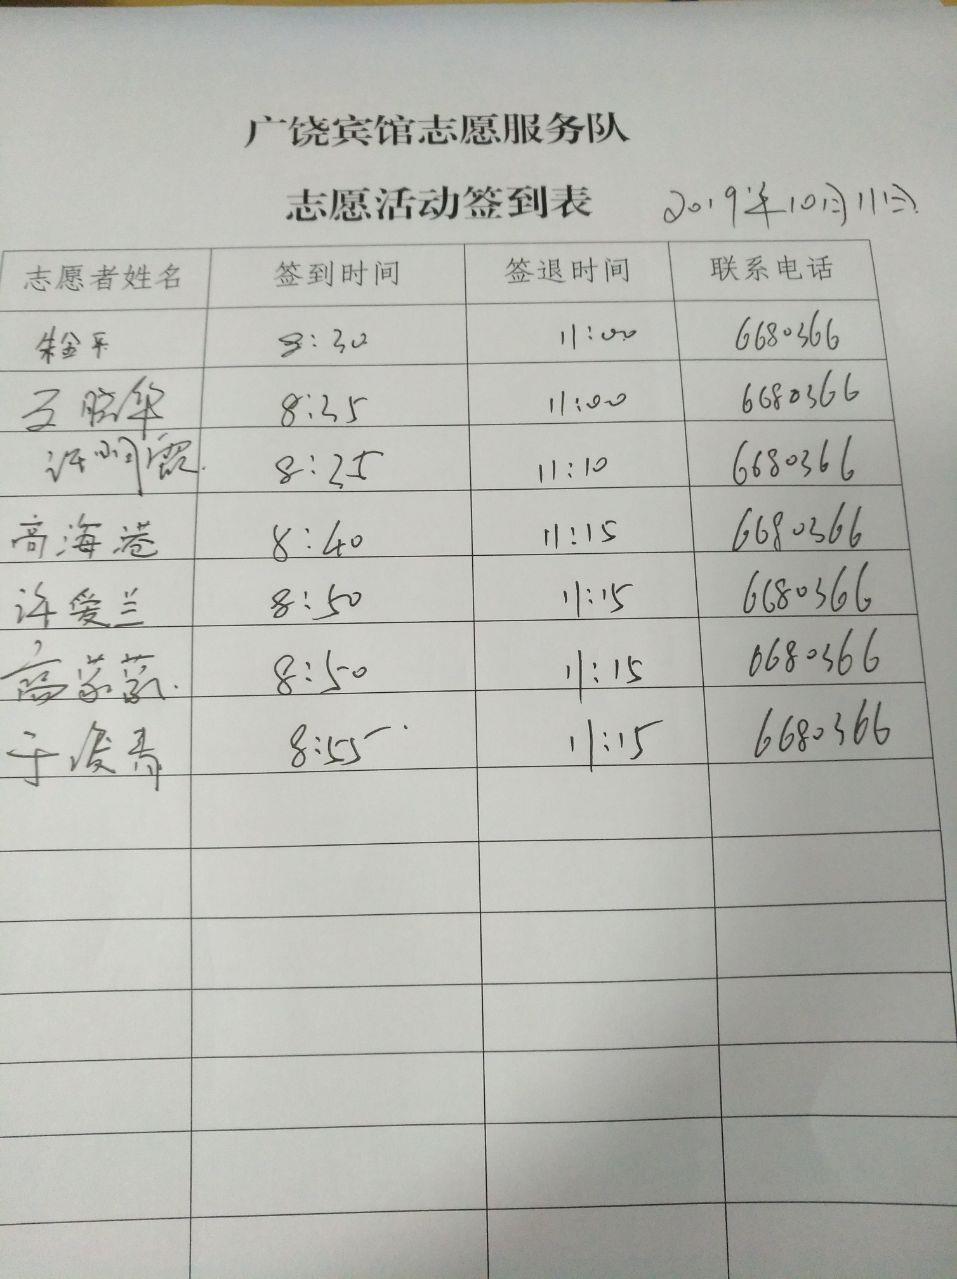 广饶宾馆志愿服务队
志愿活动签到表 2019年10月11日
志愿者姓名 签到时间 签退时间 联系电话
朱金平 8:30 11:00 6680366
王晓华 8:35 11:00 6680366
8:25 11:10 6680366
高海港 8:40 11:15 6680366
许爱兰 8:50 11:15 6680366
高蒙蒙 8:50 11:15 6680366
于俊青 8:55 11:15 6680366